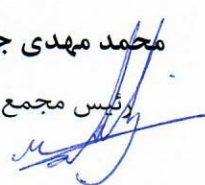 محمد مهدی
رئیس مجمع